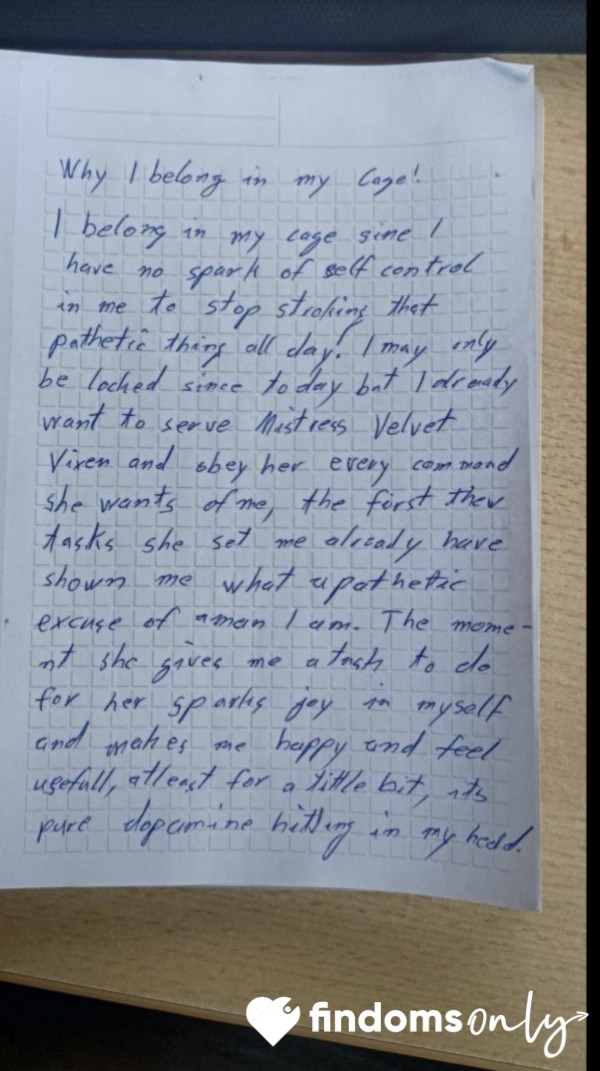 Why I belong in my Cage!
I belong in my cage sine I
have no spark of self control
in me to stop stroking that
pathetic thing all day! I may only
be locked since today but I already
want to serve Mistress Velvet
Vixen and obey her every command
she wants of me, the first
tasks she set me already have
shown me what a pathetic
excuse of a man I am. The mome-
nt she gives me a task to do
for her sparks joy in myself
and makes me happy and feel
usefull, atleast for a little bit, its
pure dopamine hitting in my head.
findomsonly